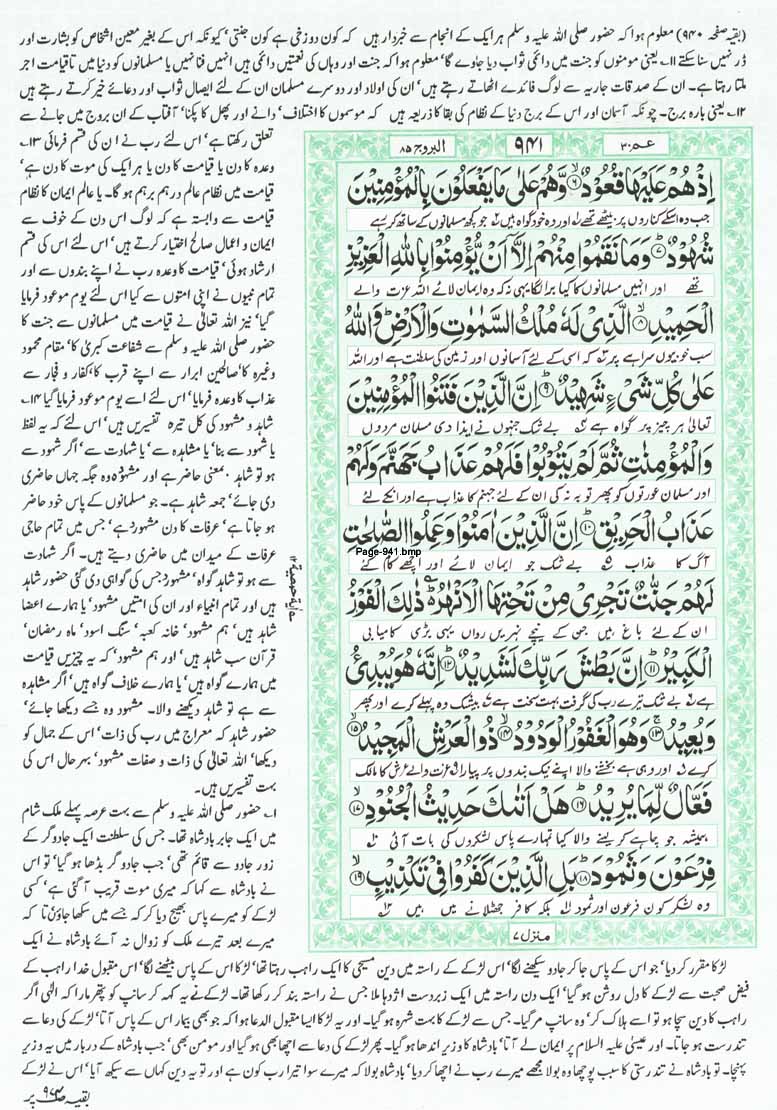 (بقیہ صفحہ ۹۴۰) معلوم ہوا کہ حضور صلی اللہ علیہ وسلم ہر ایک کے انجام سے خبردار ہیں کہ کون دوزخی ہے کون جنتی‘ کیونکہ اس کے بغیر معین اشخاص کو بشارت اور
ڈر نہیں سنا سکتے ۱۱۔ یعنی مومنوں کو جنت میں دائمی ثواب دیا جاوے گا‘ معلوم ہوا کہ جنت اور وہاں کی نعمتیں دائمی ہیں انہیں فنا نہیں یا مسلمانوں کو دنیا میں تاقیامت اجر
ملتا رہتا ہے۔ ان کے صدقات جاریہ سے لوگ فائدے اٹھاتے رہتے ہیں‘ ان کی اولاد اور دوسرے مسلمان ان کے لئے ایصال ثواب اور دعائے خیر کرتے رہتے ہیں
۱۲۔ یعنی بارہ برج۔ چونکہ آسمان اور اس کے برج دنیا کے نظام کی بقا کا ذریعہ ہیں کہ موسموں کا اختلاف‘ دانے اور پھل کا پکنا‘ آفتاب کے ان بروج میں جانے سے
تعلق رکھتا ہے‘ اس لئے رب نے ان کی قسم فرمائی ۱۳۔
وعدہ کا دن یا قیامت کا دن یا ہر ایک کی موت کا دن ہے‘
قیامت میں نظام عالم درہم برہم ہو گا۔ یا عالم ایمان کا نظام
قیامت سے وابستہ ہے کہ لوگ اس دن کے خوف سے
ایمان و اعمال صالح اختیار کرتے ہیں‘ اس لئے اس کی قسم
ارشاد ہوئی‘ قیامت کا وعدہ رب نے اپنے بندوں سے اور
تمام نبیوں نے اپنی امتوں سے کیا اس لئے یوم موعود فرمایا
گیا‘ نیز اللہ تعالیٰ نے قیامت میں مسلمانوں سے جنت کا
حضور صلی اللہ علیہ وسلم سے شفاعت کبریٰ کا‘ مقام محمود
وغیرہ کا‘ صالحین ابرار سے اپنے قرب کا‘ کفار و فجار سے
عذاب کا وعدہ فرمایا‘ اس لئے اسے یوم موعود فرمایا گیا ۱۴۔
شاہد و مشہود کی کل تیرہ تفسیریں ہیں‘ اس لئے کہ یہ لفظ
یا شہود سے بنا‘ یا مشاہدہ سے‘ یا شہادت سے‘ اگر شہود سے
ہو تو شاہد بمعنی حاضر ہے اور مشہود وہ جگہ جہاں حاضری
دی جائے‘ جمعہ شاہد ہے۔ جو مسلمانوں کے پاس خود حاضر
ہو جاتا ہے‘ عرفات کا دن مشہود ہے‘ جس میں تمام حاجی
عرفات کے میدان میں حاضری دیتے ہیں۔ اگر شہادت
سے ہو تو شاہد گواہ‘ مشہود جس کی گواہی دی گئی حضور شاہد
ہیں اور تمام انبیاء اور ان کی امتیں مشہود‘ یا ہمارے اعضا
شاہد ہیں‘ ہم مشہود‘ خانہ کعبہ‘ سنگ اسود‘ ماہ رمضان‘
قرآن سب شاہد ہیں‘ اور ہم مشہود‘ کہ یہ چیزیں قیامت
میں ہمارے گواہ ہیں‘ یا ہمارے خلاف گواہ ہیں‘ اگر مشاہدہ
سے ہے تو شاہد دیکھنے والا۔ مشہود وہ جسے دیکھا جائے‘
حضور شاہد کہ معراج میں رب کی ذات‘ اس کے جمال کو
دیکھا‘ اللہ تعالیٰ کی ذات و صفات مشہود‘ بہرحال اس کی
بہت تفسیریں ہیں۔
۱۔ حضور صلی اللہ علیہ وسلم سے بہت عرصہ پہلے ملک شام
میں ایک جابر بادشاہ تھا۔ جس کی سلطنت ایک جادوگر کے
زور جادو سے قائم تھی‘ جب جادوگر بڈھا ہو گیا‘ تو اس
نے بادشاہ سے کہا کہ میری موت قریب آ گئی ہے‘ کسی
لڑکے کو میرے پاس بھیج دیا کر کہ جسے میں سکھا جاؤں تا کہ
میرے بعد تیرے ملک کو زوال نہ آئے بادشاہ نے ایک
عم ۳۰
۹۴۱
البروج ۸۵
اِذْ هُمْ عَلَيْهَا قُعُوْدٌ ۶ وَّهُمْ عَلٰى مَا يَفْعَلُوْنَ بِالْمُؤْمِنِيْنَ
جب وہ اسکے کناروں پر بیٹھے تھے اور وہ خود گواہ ہیں جو کچھ مسلمانوں کے ساتھ کر رہے
شُهُوْدٌ ۷ وَمَا نَقَمُوْا مِنْهُمْ اِلَّآ اَنْ يُّؤْمِنُوْا بِاللّٰهِ الْعَزِيْزِ
تھے اور انہیں مسلمانوں کا کیا برا لگا یہی نہ کہ وہ ایمان لائے اللہ عزت والے
الْحَمِيْدِ ۸ الَّذِيْ لَهٗ مُلْكُ السَّمٰوٰتِ وَالْاَرْضِ وَاللّٰهُ
سب خوبیوں سراہے پر کہ اسی کے لئے آسمانوں اور زمین کی سلطنت ہے اور اللہ
عَلٰى كُلِّ شَيْءٍ شَهِيْدٌ ۹ اِنَّ الَّذِيْنَ فَتَنُوا الْمُؤْمِنِيْنَ
تعالیٰ ہر چیز پر گواہ ہے بے شک جنہوں نے ایذا دی مسلمان مردوں
وَالْمُؤْمِنٰتِ ثُمَّ لَمْ يَتُوْبُوْا فَلَهُمْ عَذَابُ جَهَنَّمَ وَلَهُمْ
اور مسلمان عورتوں کو پھر توبہ نہ کی ان کے لئے جہنم کا عذاب ہے اور انکے لئے
عَذَابُ الْحَرِيْقِ ۱۰ اِنَّ الَّذِيْنَ اٰمَنُوْا وَعَمِلُوا الصّٰلِحٰتِ
Page-941.bmp
آگ کا عذاب بے شک جو ایمان لائے اور اچھے کام کئے
لَهُمْ جَنّٰتٌ تَجْرِيْ مِنْ تَحْتِهَا الْاَنْهٰرُ ذٰلِكَ الْفَوْزُ
ان کے لئے باغ ہیں جن کے نیچے نہریں رواں یہی بڑی کامیابی
الْكَبِيْرُ ۱۱ اِنَّ بَطْشَ رَبِّكَ لَشَدِيْدٌ ۱۲ اِنَّهٗ هُوَ يُبْدِئُ
ہے بے شک تیرے رب کی گرفت بہت سخت ہے بیشک وہ پہلے کرے اور پھر
وَيُعِيْدُ ۱۳ وَهُوَ الْغَفُوْرُ الْوَدُوْدُ ۱۴ ذُو الْعَرْشِ الْمَجِيْدُ ۱۵
کرے اور وہی ہے بخشنے والا اپنے نیک بندوں پر پیارا عزت والے عرش کا مالک
فَعَّالٌ لِّمَا يُرِيْدُ ۱۶ هَلْ اَتٰىكَ حَدِيْثُ الْجُنُوْدِ ۱۷
ہمیشہ جو چاہے کر لینے والا کیا تمہارے پاس لشکروں کی بات آئی
فِرْعَوْنَ وَثَمُوْدَ ۱۸ بَلِ الَّذِيْنَ كَفَرُوْا فِيْ تَكْذِيْبٍ ۱۹
وہ لشکر کون فرعون اور ثمود بلکہ کافر جھٹلانے میں ہیں
منزل ۷
لڑکا مقرر کر دیا‘ جو اس کے پاس جا کر جادو سیکھنے لگا‘ اس لڑکے کے راستہ میں دین مسیحی کا ایک راہب رہتا تھا‘ لڑکا اس کے پاس بیٹھنے لگا‘ اس مقبول خدا راہب کے
فیض صحبت سے لڑکے کا دل روشن ہو گیا‘ ایک دن راستہ میں ایک زبردست اژدہا ملا جس نے راستہ بند کر رکھا تھا۔ لڑکے نے یہ کہہ کر سانپ کو پتھر مارا کہ الٰہی اگر
راہب کا دین سچا ہو تو اسے ہلاک کر‘ وہ سانپ مر گیا۔ جس سے لڑکے کا بہت شہرہ ہو گیا۔ اور یہ لڑکا ایسا مقبول الدعا ہوا کہ جو بھی بیمار اس کے پاس آتا‘ لڑکے کی دعا سے
تندرست ہو جاتا۔ اور عیسیٰ علیہ السلام پر ایمان لے آتا‘ بادشاہ کا وزیر اندھا ہو گیا۔ پھر لڑکے کی دعا سے اچھا بھی ہو گیا اور مومن بھی‘ جب بادشاہ کے دربار میں یہ وزیر
پہنچا۔ تو بادشاہ نے تندرستی کا سبب پوچھا وہ بولا مجھے میرے رب نے اچھا کر دیا‘ بادشاہ بولا کہ میرے سوا تیرا رب کون ہے اور تو یہ دین کہاں سے سیکھ آیا‘ اس نے لڑکے
بقیہ صفحہ ۹۷۴ پر